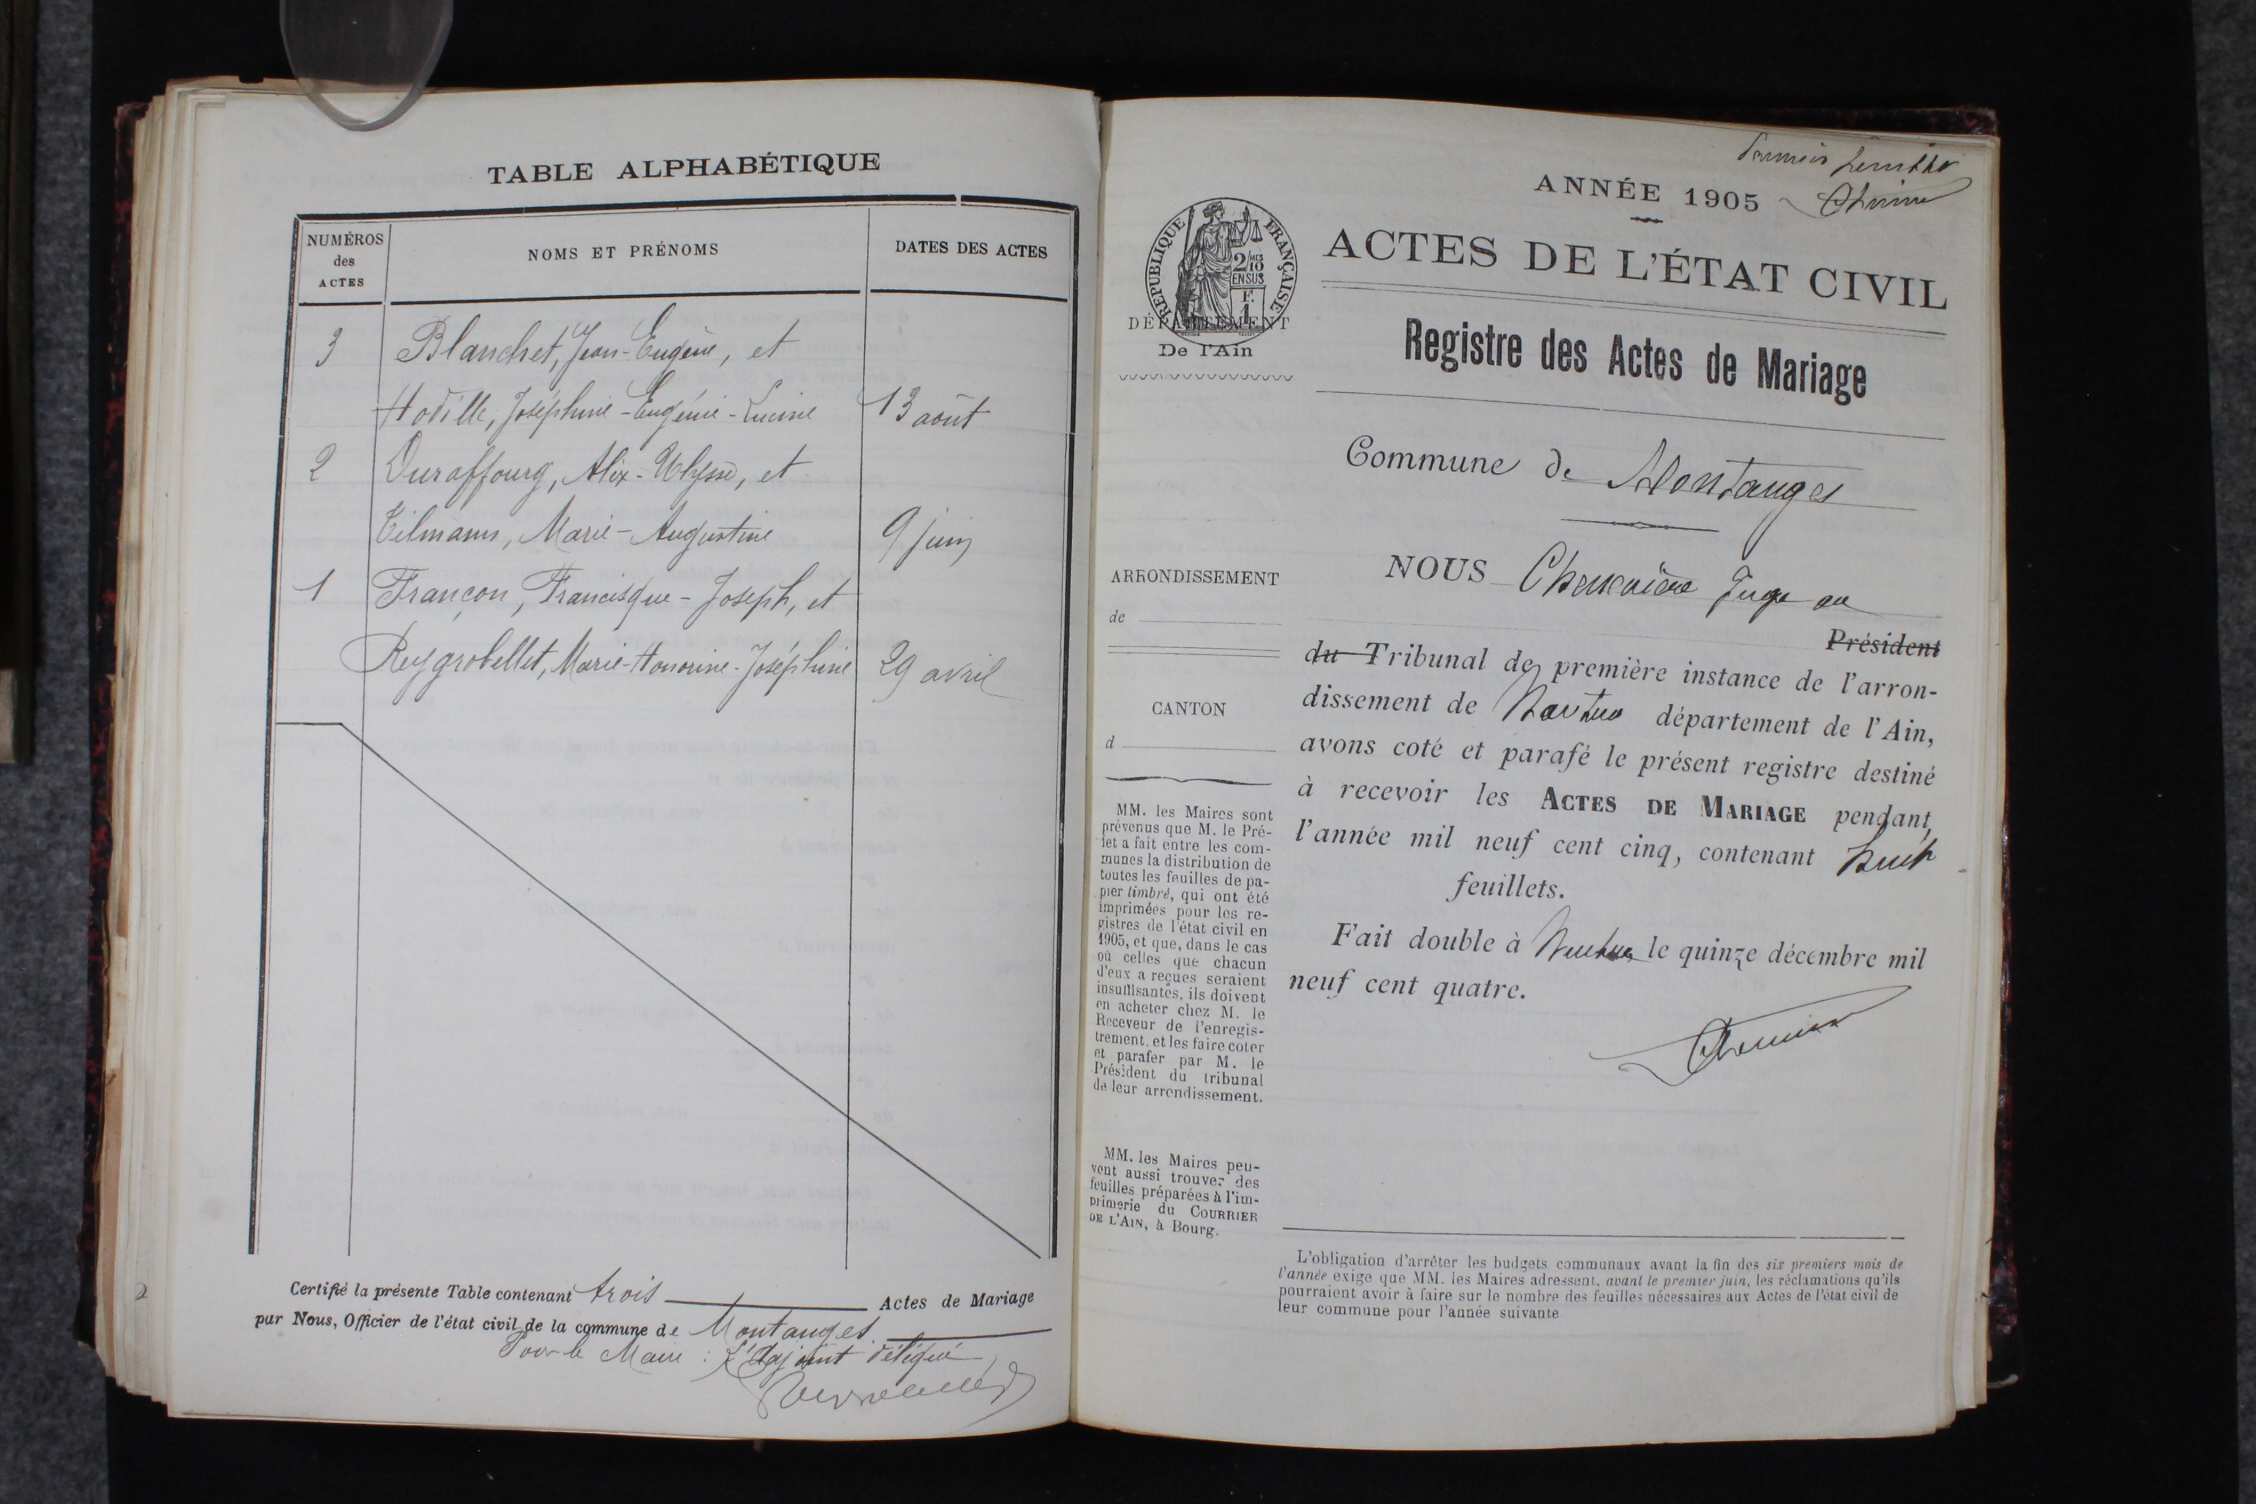 TABLE ALPHABÉTIQUE
NUMÉROS
des
ACTES
NOMS ET PRÉNOMS
DATES DES ACTES
3 Blanchet, Jean-Eugène, et
Joséphine-Eugénie-Lucine 13 août
2 Duraffourg, Alix-Ulysse, et
Tilmann, Marie-Augustine 9 juin
1 Françon, Francisque-Joseph, et
Reygrobellet, Marie-Honorine-Joséphine 29 avril
Certifié la présente Table contenant trois Actes de Mariage
par Nous, Officier de l'état civil de la commune de Montanges.
Pour le Maire : L'Adjoint délégué
Premier feuillet
ANNÉE 1905
RÉPUBLIQUE FRANÇAISE
2/10
EN SUS
F.
1
ACTES DE L'ÉTAT CIVIL
DÉPARTEMENT
De l'Ain
Registre des Actes de Mariage
Commune de Montanges
ARRONDISSEMENT
de
CANTON
d
MM. les Maires sont
prévenus que M. le Pré-
fet a fait entre les com-
munes la distribution de
toutes les feuilles de pa-
pier timbré, qui ont été
imprimées pour les re-
gistres de l'état civil en
1905, et que, dans le cas
où celles que chacun
d'eux a reçues seraient
insuffisantes, ils doivent
en acheter chez M. le
Receveur de l'enregis-
trement, et les faire coter
et parafer par M. le
Président du tribunal
de leur arrondissement.
MM. les Maires peu-
vent aussi trouver des
feuilles préparées à l'im-
primerie du COURRIER
DE L'AIN, à Bourg.
NOUS Chenevière Juge au
Président
du Tribunal de première instance de l'arron-
dissement de Nantua département de l'Ain,
avons coté et parafé le présent registre destiné
à recevoir les ACTES DE MARIAGE pendant
l'année mil neuf cent cinq, contenant huit
feuillets.
Fait double à Nantua le quinze décembre mil
neuf cent quatre.
L'obligation d'arrêter les budgets communaux avant la fin des six premiers mois de
l'année exige que MM. les Maires adressent, avant le premier juin, les réclamations qu'ils
pourraient avoir à faire sur le nombre des feuilles nécessaires aux Actes de l'état civil de
leur commune pour l'année suivante